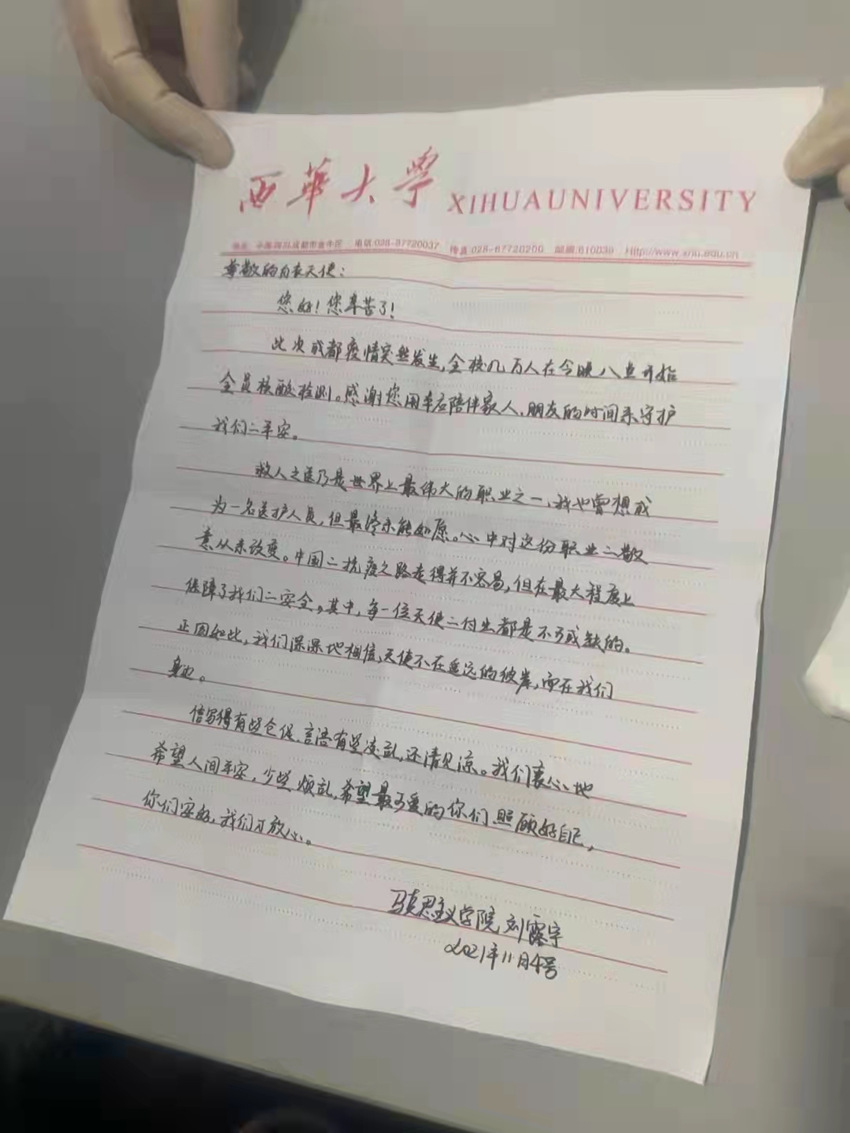 西華大学 XIHUAUNIVERSITY
地址:中国四川成都市金牛区 电话:028-87720037 传真:028-87720200 邮编:610039 Http://www.xhu.edu.cn
尊敬的白衣天使:
您好!您辛苦了!
此次成都疫情突然发生,全校几万人在今晚八点开始
全员核酸检测。感谢您用本应陪伴家人、朋友的时间来守护
我们二平安。
救人之医乃是世界上最伟大的职业之一,我也曾想成
为一名医护人员,但最终未能如愿。心中对这份职业二敬
意从未改变。中国二抗疫之路走得并不容易,但在最大程度上
保障了我们二安全。其中,每一位天使二付出都是不可或缺的。
正因如此,我们深深地相信,天使不在遥远的彼岸,而在我们
身边。
信写得有些仓促,言语有些凌乱,还请见凉。我们衷心地
希望人间平安,少些烦乱,希望最可爱的你们照顾好自己,
你们安好,我们才放心。
马克思主义学院 刘露宇
2021年11月4号